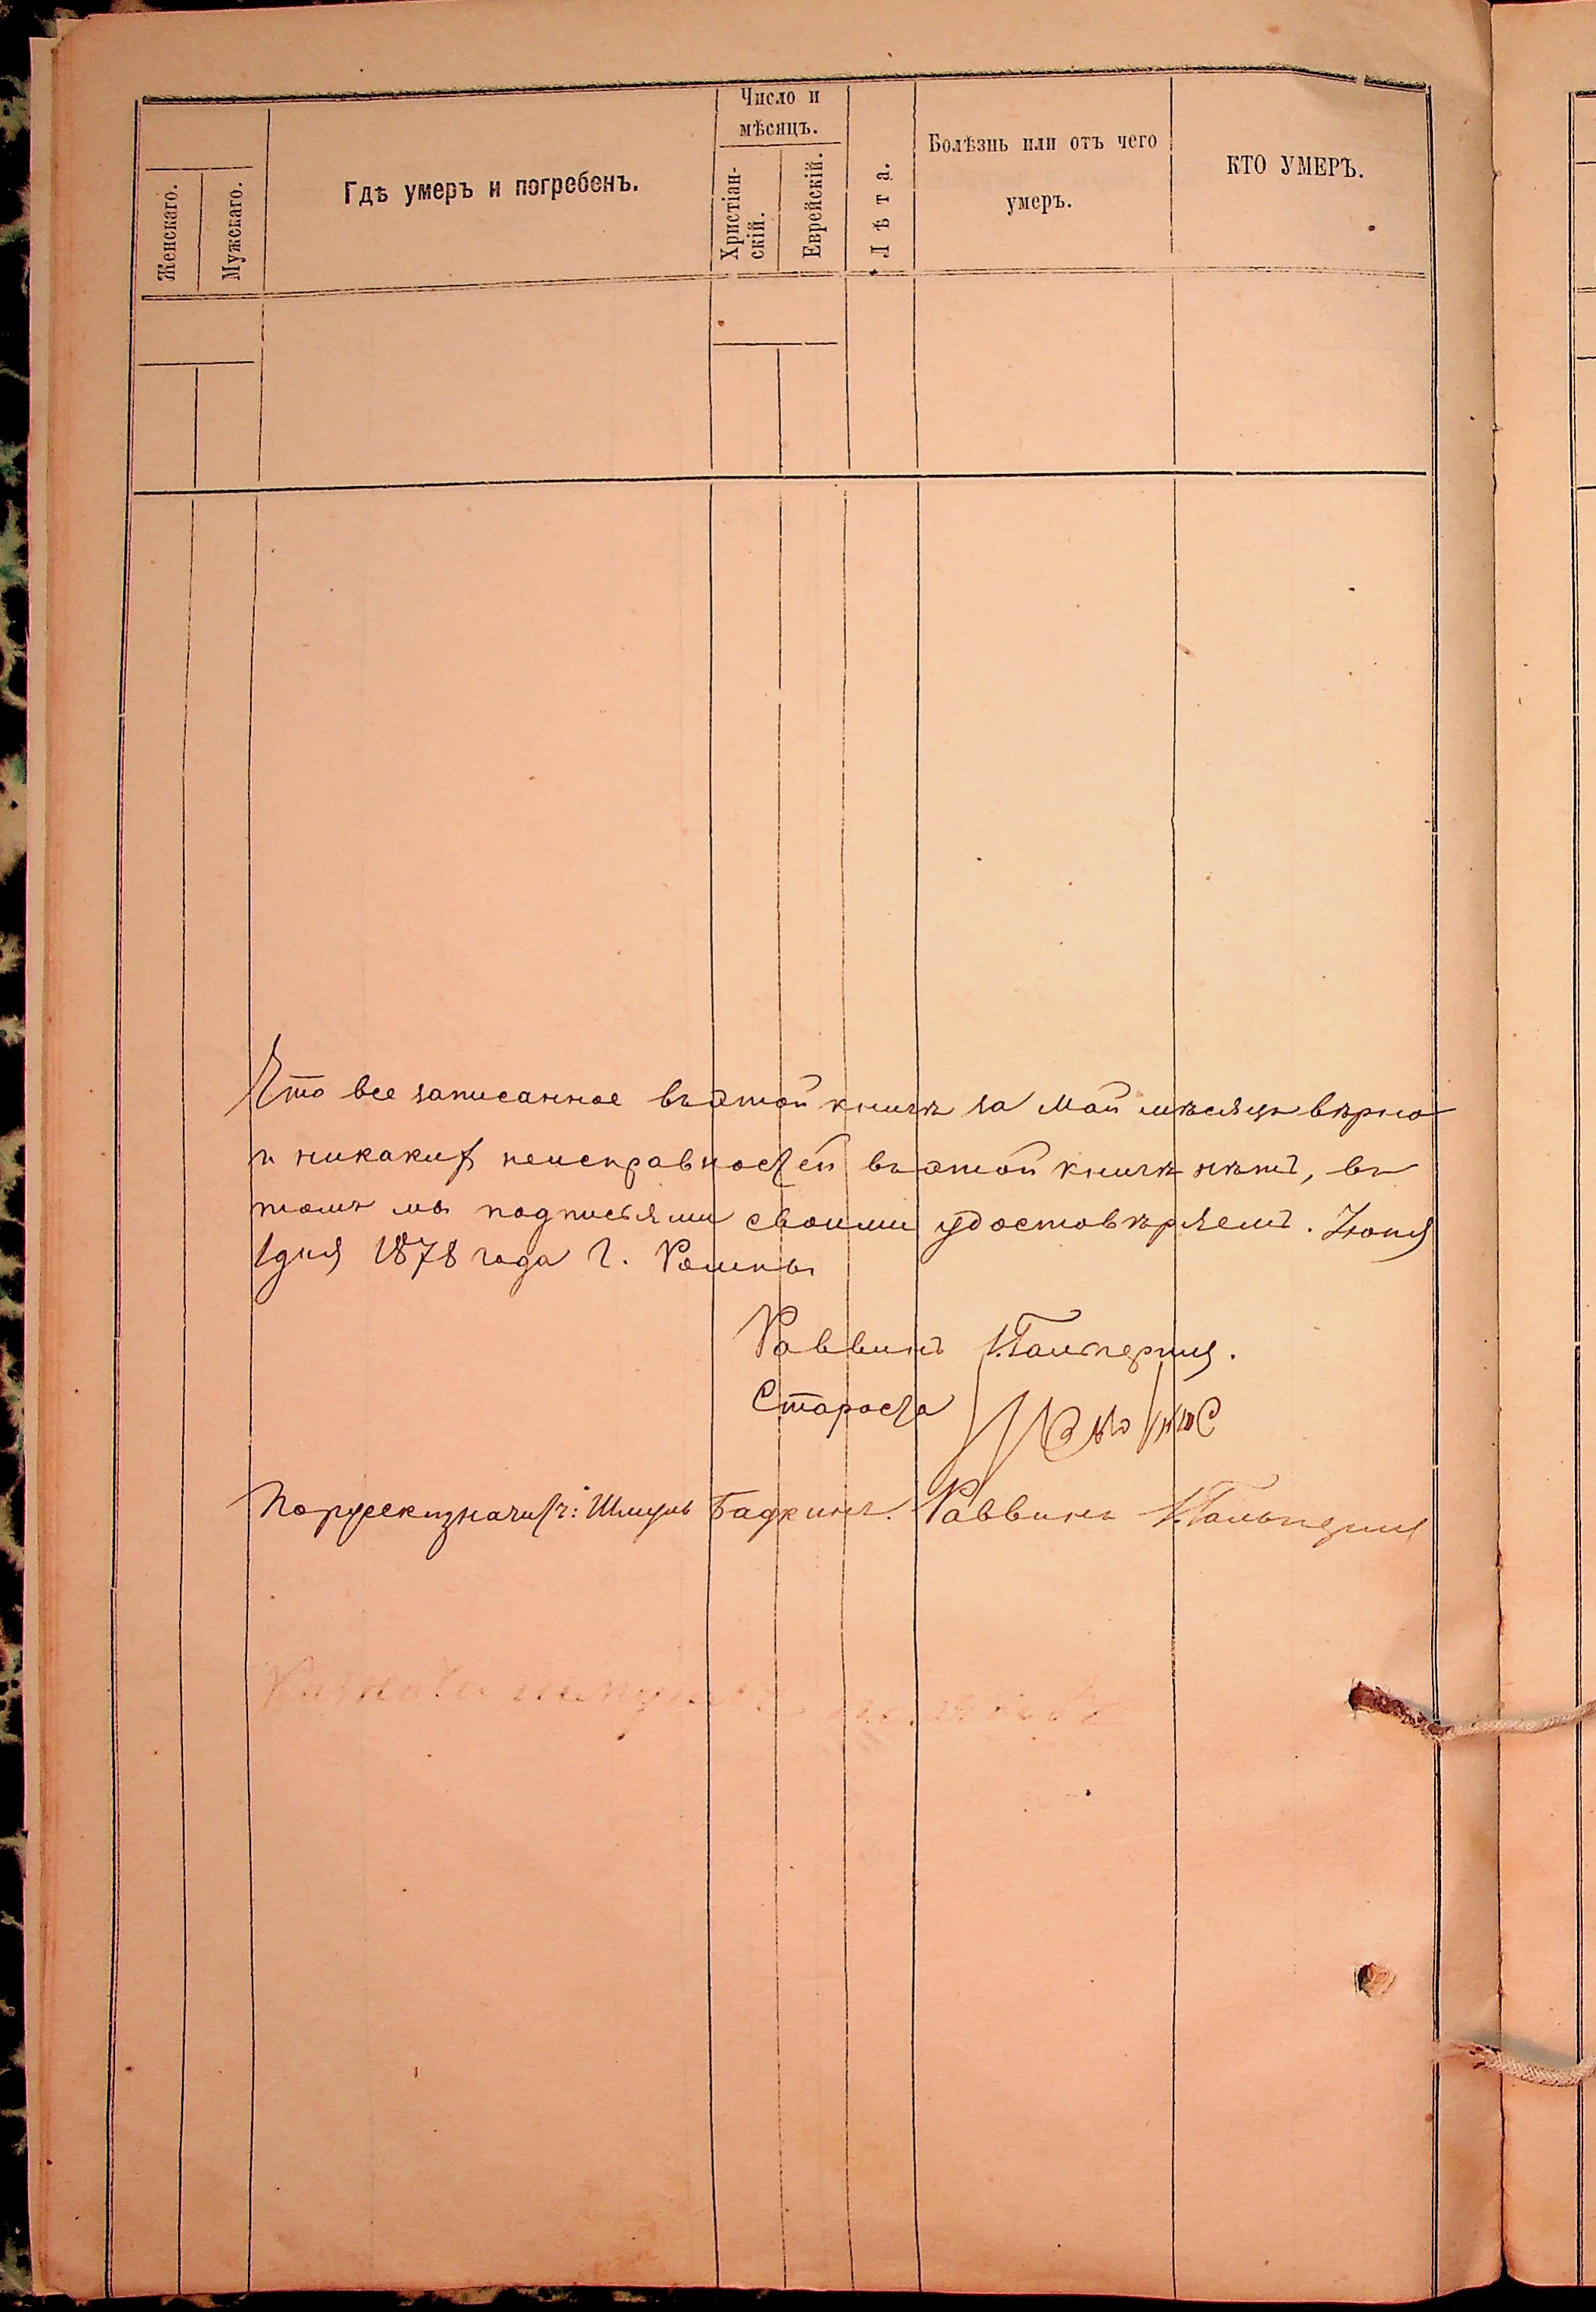 Женскаго.
Мужскаго.
Гдѣ умеръ и погребенъ.
Число и
мѣсяцъ.
Христіан-
скій.
Еврейскій.
Лѣта.
Болѣзнь или отъ чего
умеръ.
КТО УМЕРЪ.
Что все записанное въ этой книгѣ за Май мѣсяцъ вѣрно
и никаких неисправностей въ этой книгѣ нѣтъ, въ
томъ мы подписями своими удостовѣряемъ. Іюня
1 дня 1878 года Г. Ромны
Раввинъ И. Гальперинъ.
Староста
Шмуль Бадкинъ. Раввинъ И. Гальперинъ